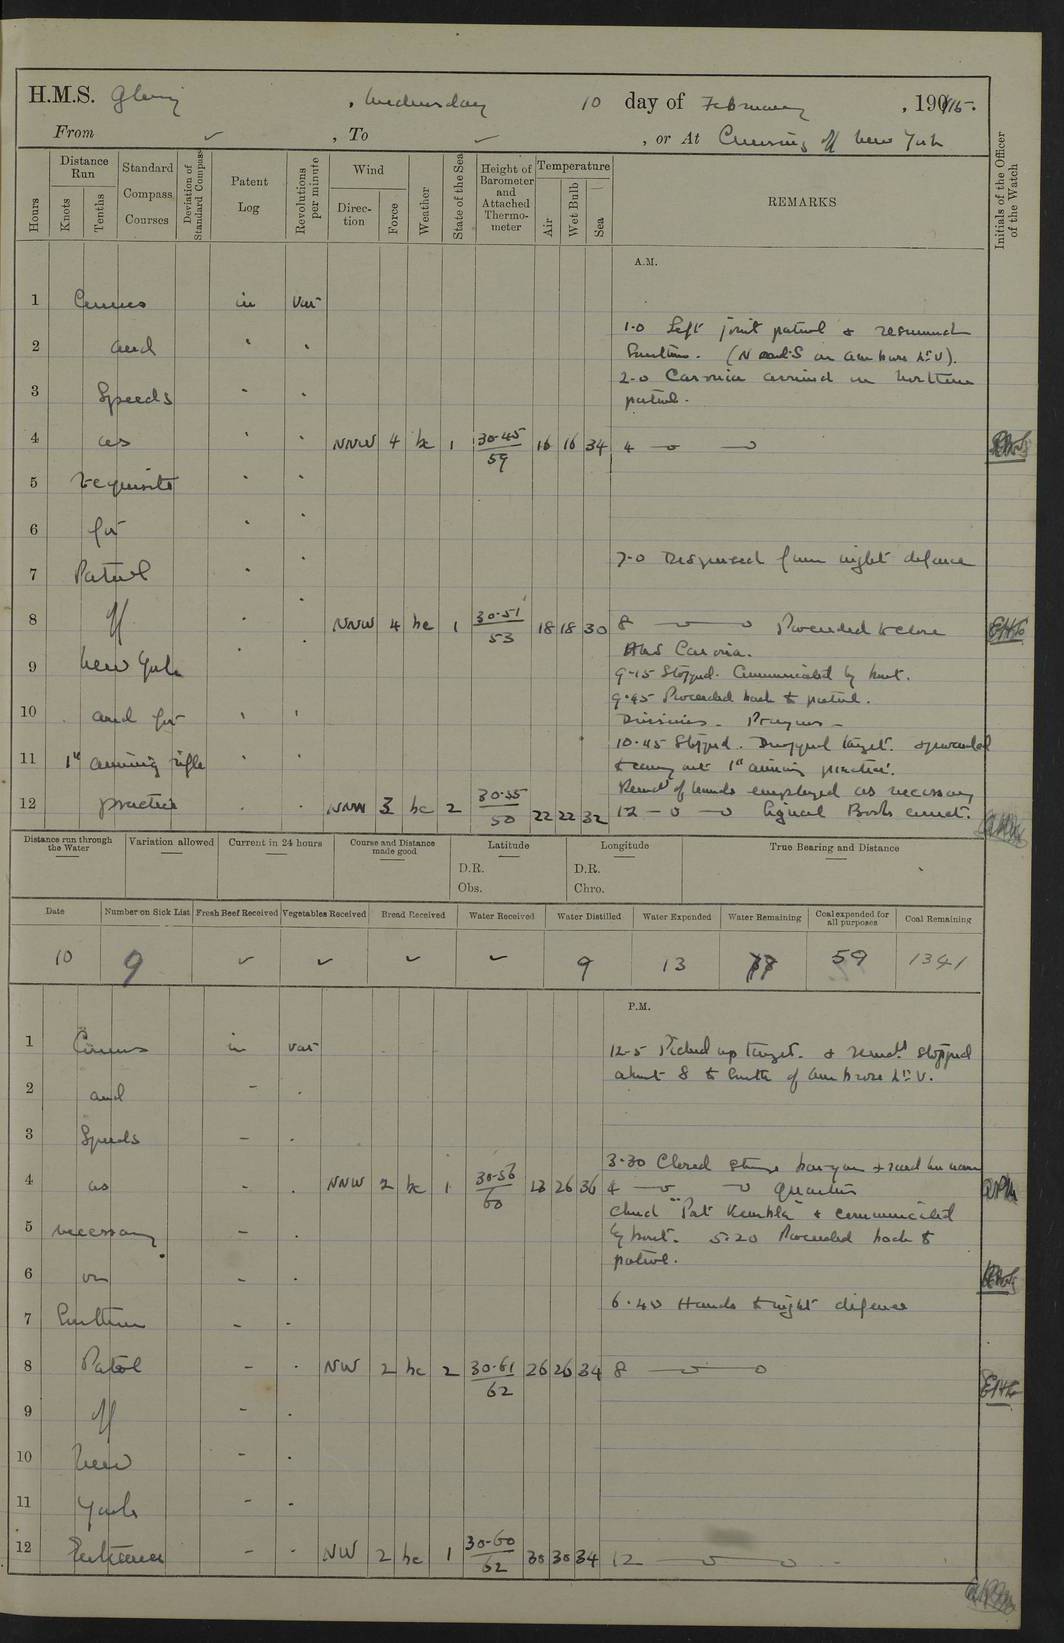 H.M.S. Glory, Wednesday 10 day of February, 1915.
From ✓, To ✓, or At Cruising off New York
Hours
Distance Run
Knots
Tenths
Standard Compass Courses
Deviation of Standard Compass
Patent Log
Revolutions per minute
Wind
Direction
Force
Weather
State of the Sea
Height of Barometer and Attached Thermometer
Temperature
Air
Wet Bulb
Sea
REMARKS
Initials of the Officer of the Watch
A.M.
1 Courses in var
1-0 Left joint patrol & resumed
2 and " "
Southern. (N and S on Ambrose Lt V).
2-0 Caronia arrived on Northern
3 Speeds " "
patrol.
4 as " " NNW 4 bc 1 30.45/59 16 16 34 4
5 requisite " "
6 for " "
7 Patrol " "
7-0 Dispersed from night defence
8 off " " NNW 4 bc 1 30.51/53 18 18 30 8 Proceeded to close
HMS Caronia.
9 New York "
9-15 Stopped. Communicated by boat.
9.45 Proceeded back to patrol.
10 and for " "
Divisions - Prayers -
10.45 Stopped. Dropped target. & proceeded
11 1" aiming rifle " "
to carry out 1" aiming practice.
Remdr of hands employed as necessary
12 practice " " NNW 3 bc 2 30.55/50 22 22 32 12 Signal Books correct.
Distance run through the Water
Variation allowed
Current in 24 hours
Course and Distance made good
Latitude
D.R.
Obs.
Longitude
D.R.
Chro.
True Bearing and Distance
Date
Number on Sick List
Fresh Beef Received
Vegetables Received
Bread Received
Water Received
Water Distilled
Water Expended
Water Remaining
Coal expended for all purposes
Coal Remaining
10 9 ✓ ✓ ✓ ✓ 9 13 59 1341
P.M.
1 Courses in var
12-5 Picked up target. & remd stopped
2 and - "
about 8 to South of Ambrose Lt V.
3 Speeds - "
3-30 Closed
4 as - " NNW 2 bc 1 30.56/60 26 36 4 Quarters
closed "Port Kembla" & communicated
5 necessary - "
by boat. 5.20 Proceeded back to
patrol.
6 on - "
6.40 Hands to night defence
7 Southern - "
8 Patrol - " NW 2 bc 2 30.61/62 26 26 34 8
9 off - "
10 New - "
11 York - "
12 Entrance - " NW 2 bc 1 30.60/62 30 30 34 12